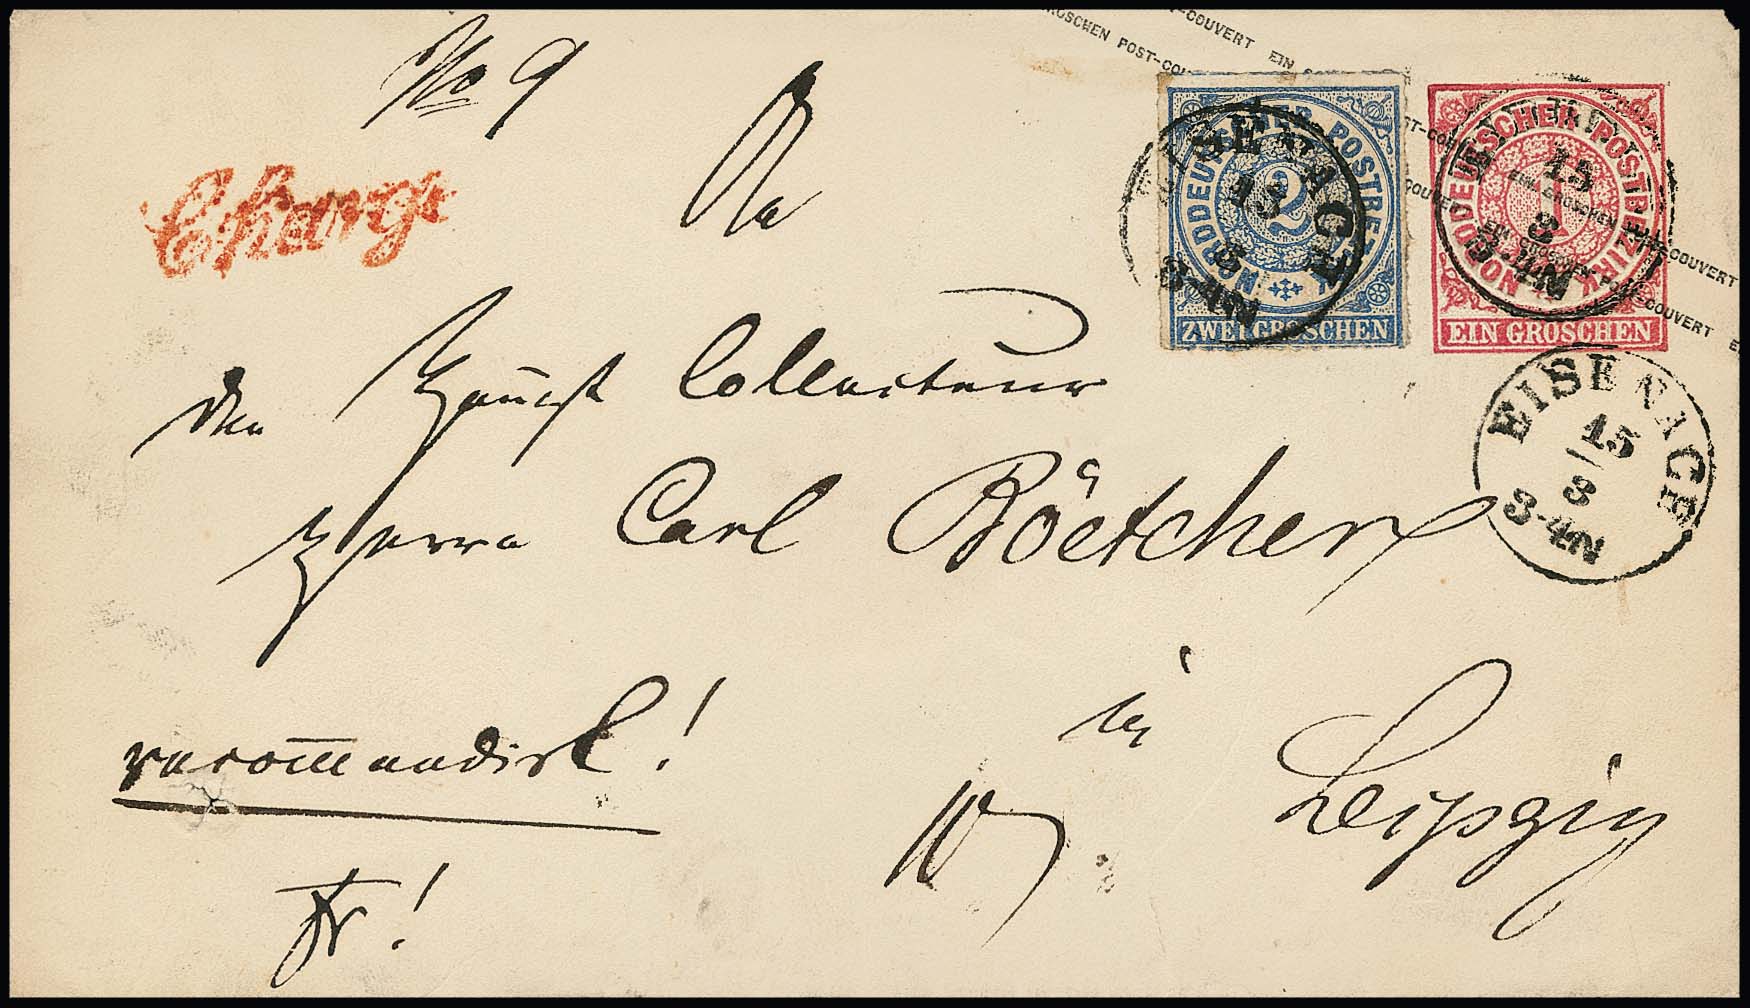 No 9
Charge
An
den Haupt Collecteur
Herrn Carl Böetcher
in
Leipzig
recommandirt!
fr!
GROSCHEN POST-COUVERT EIN
NORDDEUTSCHER POSTBEZIRK
2
ZWEI GROSCHEN
EISENACH
15
3
3-4N
NORDDEUTSCHER POSTBEZIRK
1
EIN GROSCHEN
EISENACH
15
3
3-4N
EIN GROSCHEN POST-COUVERT
EISENACH
15/3
3-4N